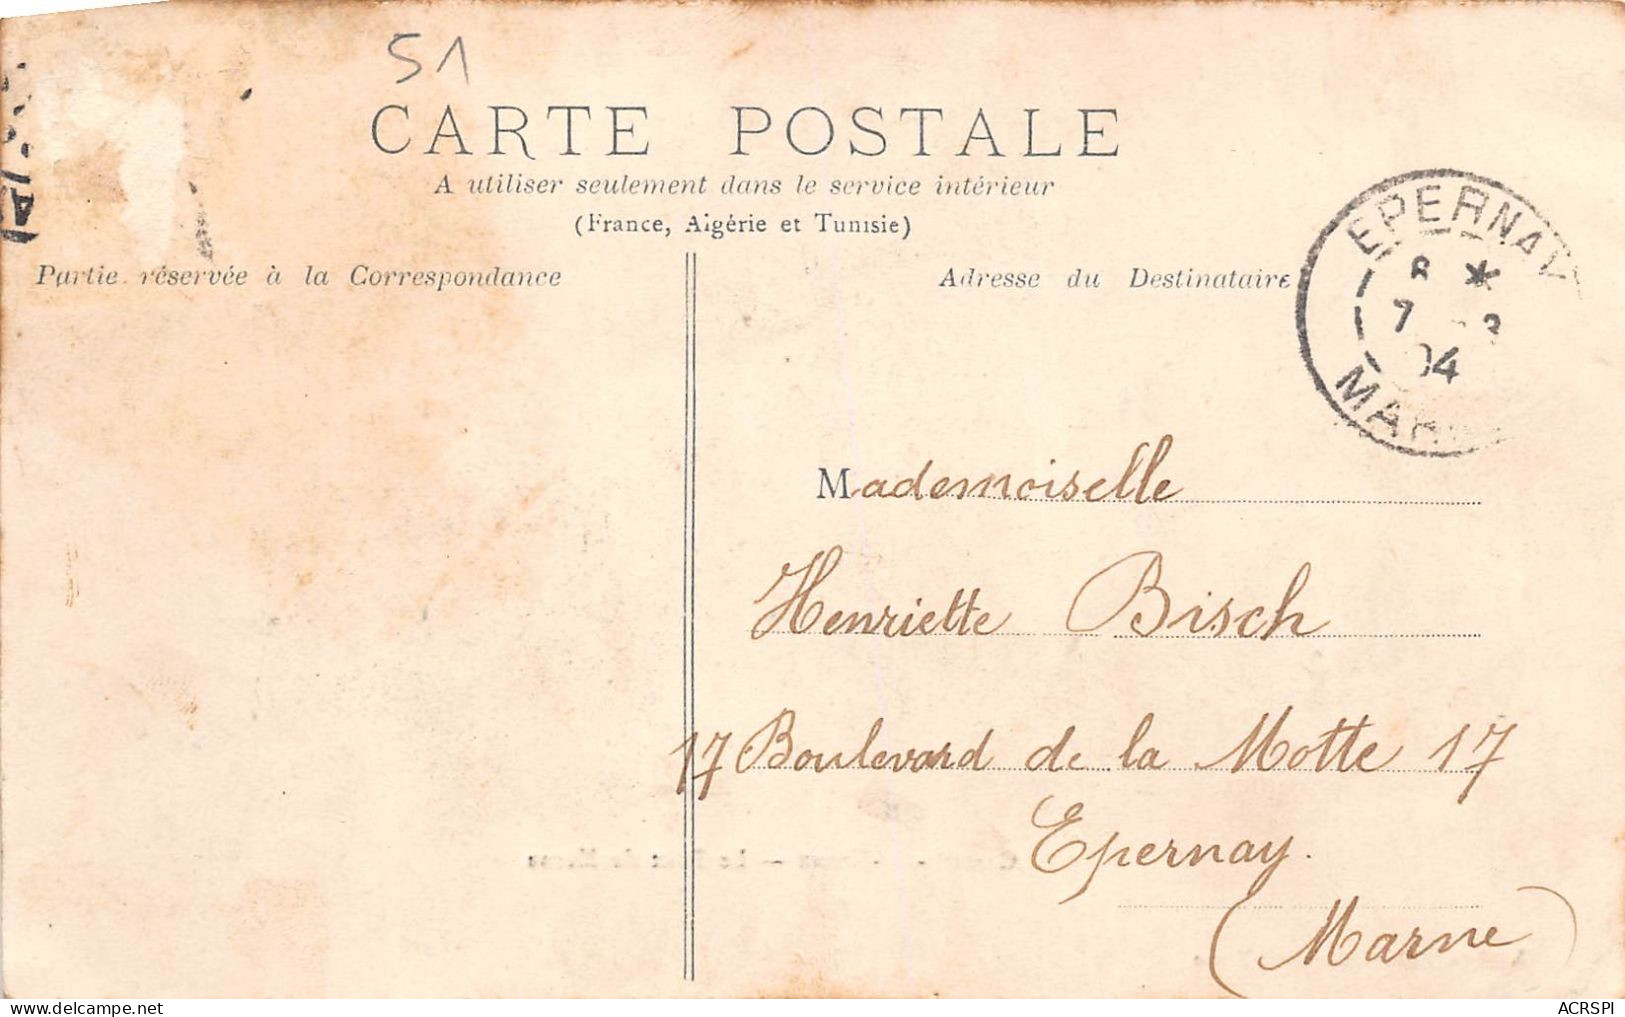 51
CARTE POSTALE
A utiliser seulement dans le service intérieur
(France, Algérie et Tunisie)
Partie réservée à la Correspondance
Adresse du Destinataire
EPERNAY
8 *
7
04
MAR
Mademoiselle
Henriette Bisch
17 Boulevard de la Motte 17
Epernay.
(Marne)
ACRSPI